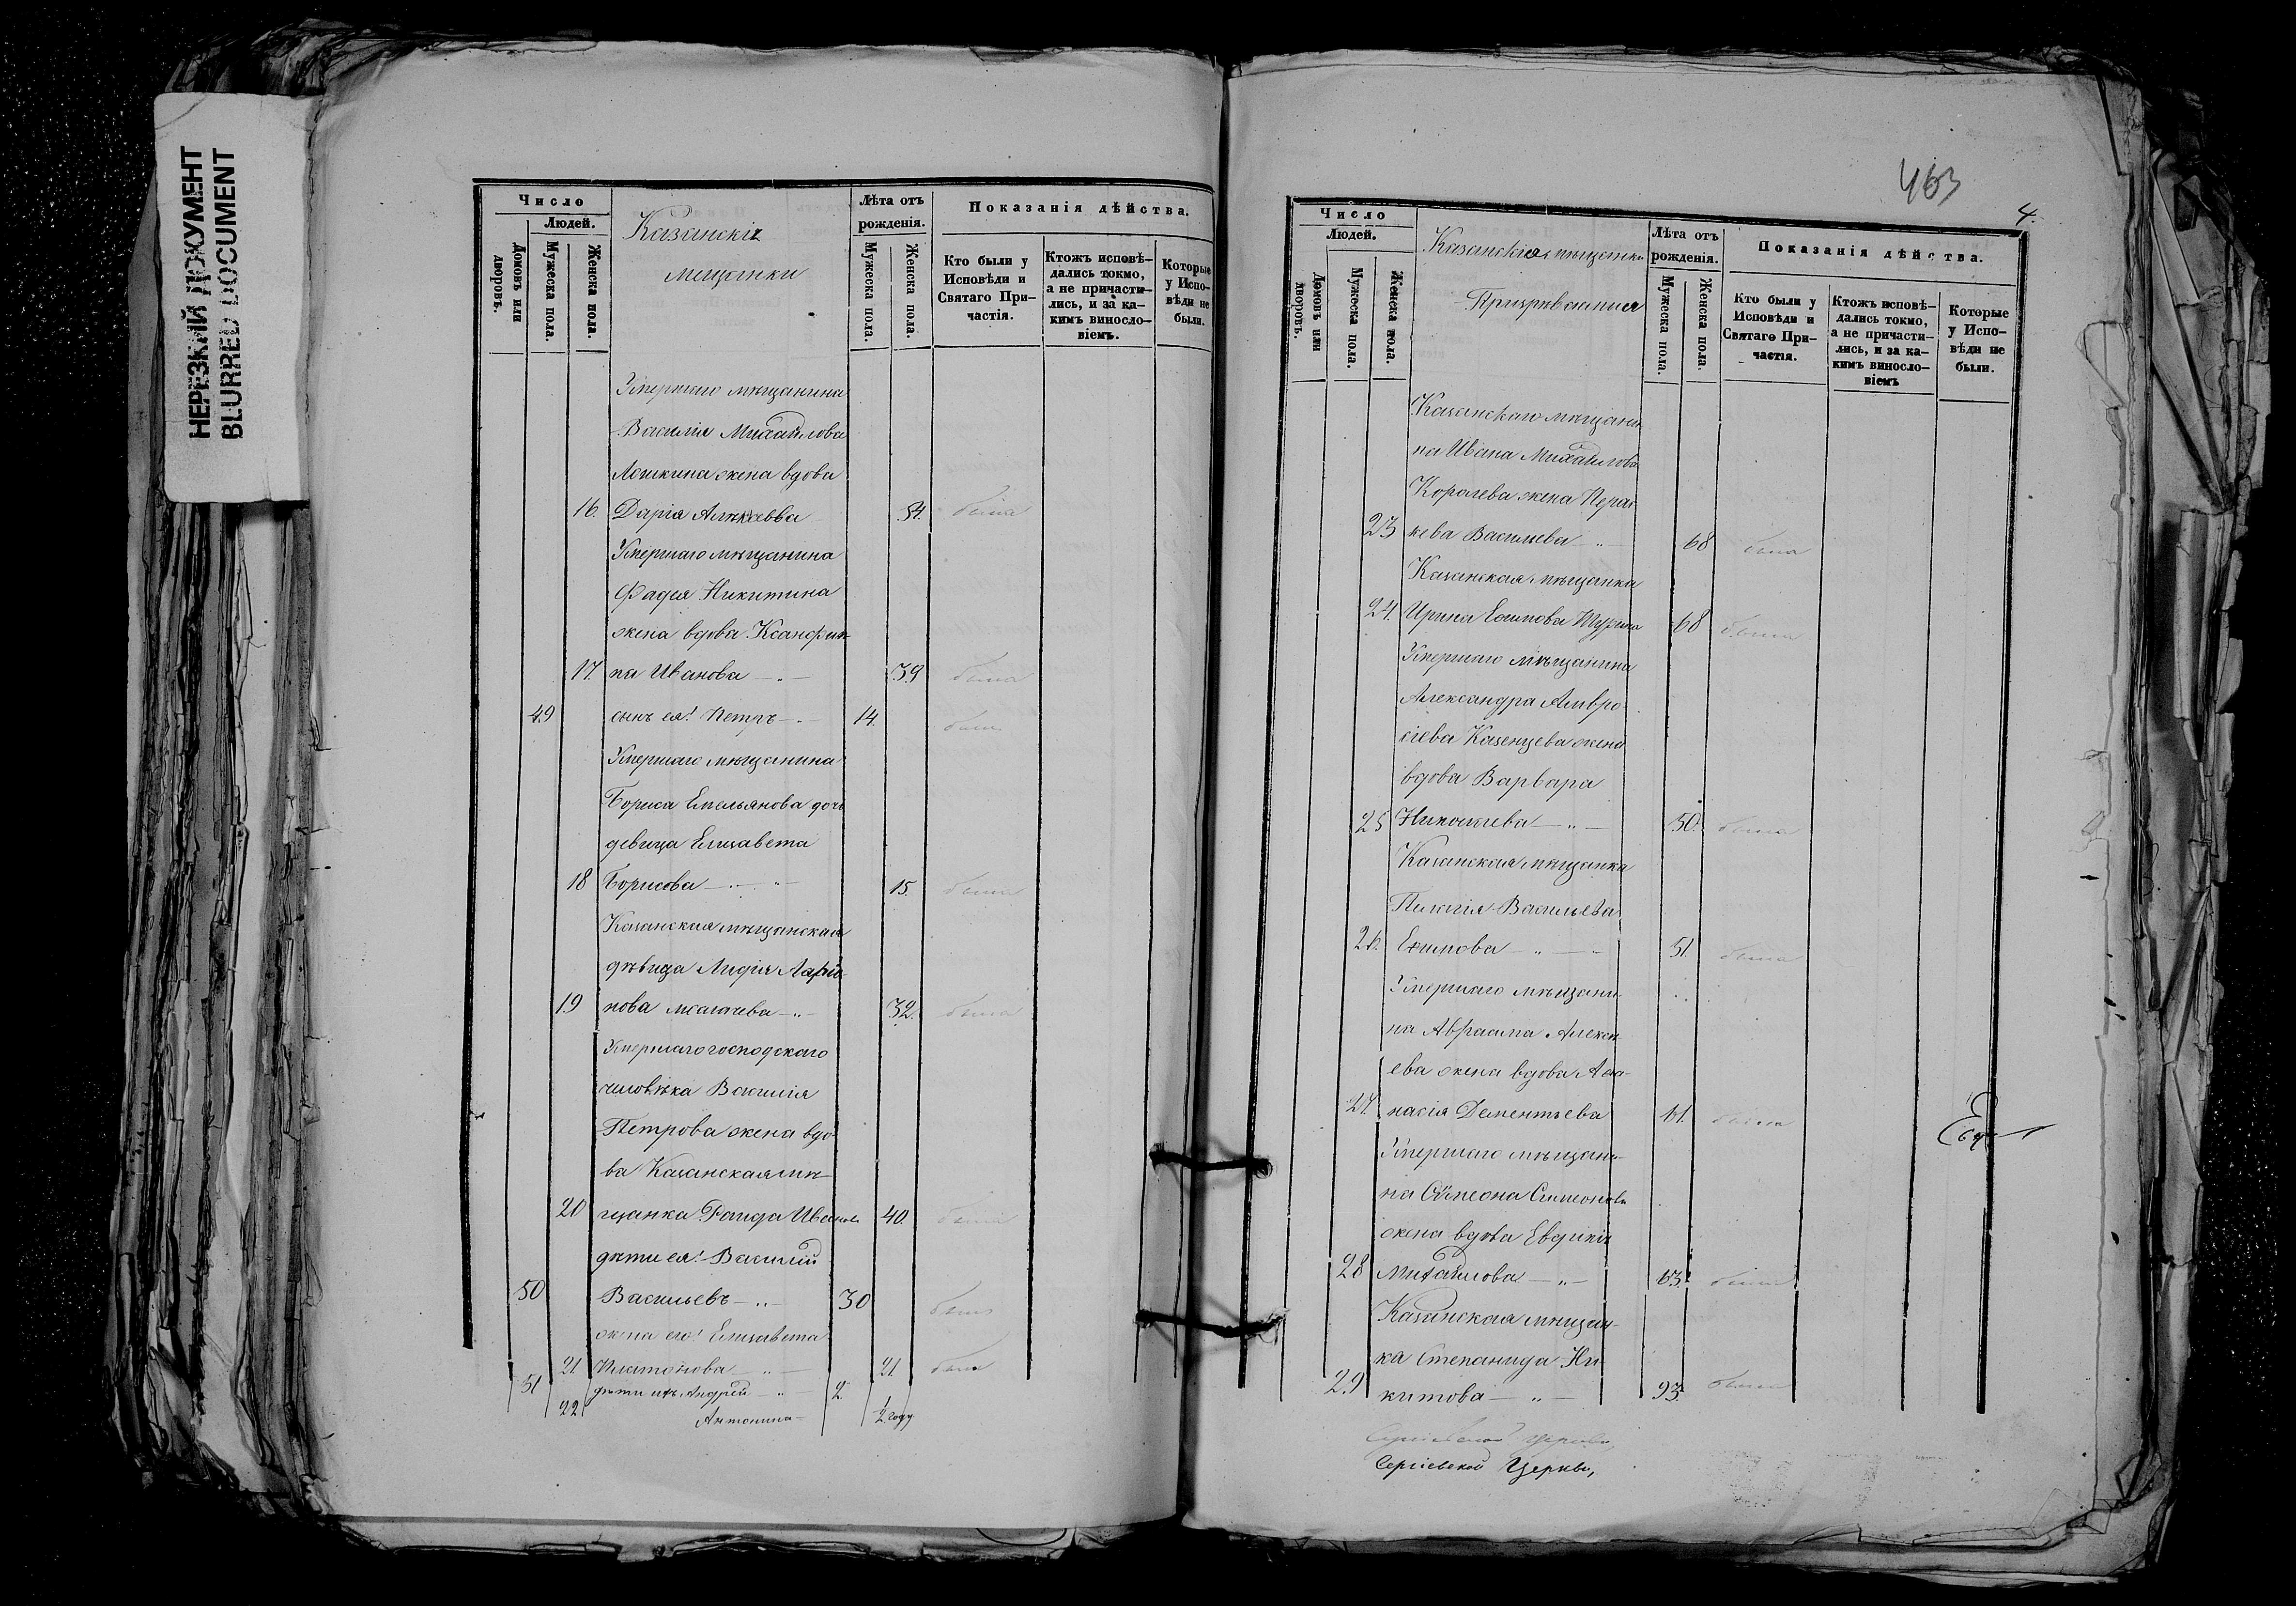 НЕРЕЗКИЙ ДОКУМЕНТ
BLURRED DOCUMENT
Число
Людей.
Домовъ или дворовъ.
Мужеска пола.
Женска пола.
Казанскія
мещанки
Лѣта отъ рожденія.
Мужеска пола.
Женска пола.
Показанія дѣйства.
Кто были у Исповѣди и Святаго Причастія.
Ктожъ исповѣдались токмо, а не причастились, и за какимъ винословіемъ.
Которые у Исповѣди не были.
Умершаго мѣщанина
Василія Михайлова
жена вдова
16. Дарія 54. была
Умершаго мѣщанина
Фадея Никитина
жена вдова Ксанфип-
17. па Иванова 39 была
49 сынъ ея: Петръ 14. былъ
Умершаго мѣщанина
Бориса Емельянова дочь
девица Елисавета
18 Борисова 15. была
Казанская мѣщанская
дѣвица Лидія Ларіо-
19 нова 32. была
Умершаго господскаго
человѣка Василія
Петрова жена вдо-
ва Казанская мѣ-
20 щанка Раида Иванова 40. была
дѣти ея: Василій
50 Васильевъ 30 былъ
жена его: Елисавета
21. Платонова 21 была
51 дѣти ихъ: Андрей 2.
22 Антонина ½ году
463
4.
Число
Людей.
Домовъ или дворовъ.
Мужеска пола.
Женска пола.
Казанскія мѣщанки
Лѣта отъ рожденія.
Мужеска пола.
Женска пола.
Показанія дѣйства.
Кто были у Исповѣди и Святаго Причастія.
Ктожъ исповѣдались токмо, а не причастились, и за какимъ винословіемъ
Которые у Исповѣди не были.
Казанскаго мѣщани
на Ивана Михайлова
Королева жена Парас
23 кева Васильева 68 была
Казанская мѣщанка
24. Ирина 68 была
Умершаго мѣщанина
Александра Амвро-
сіева Казенцева жена
вдова Варвара
25 Николаева 50. была
Казанская мѣщанка
Пелагія Васильева
26. Ефимова 51. была
Умершаго мѣщани-
на Авраама Алексѣ
ева жена вдова Ана-
27. насія Дементьева 61. была
Умершаго мѣщани-
на Симеона Симеонова
жена вдова Евдокія
28 Михайлова 63. была
Казанская мѣщан-
ка Степанида Ни-
29 китова 93. была
Сергіевской Церкви,